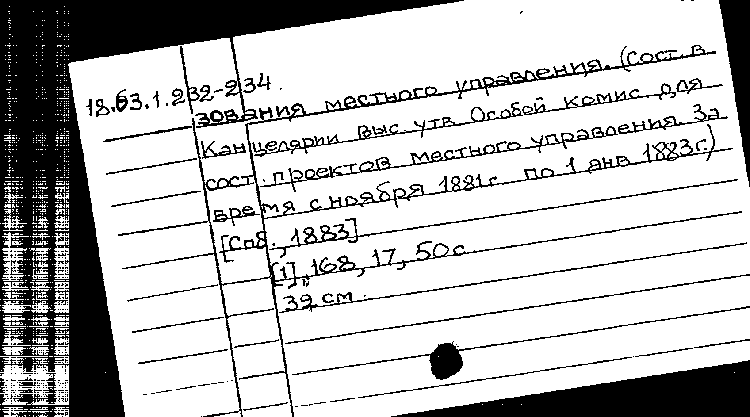 18.63.1.232-234.
зования местного управления. (Сост. в
Канцелярии Выс. утв. Особой Комис. для
сост. проектов местного управления. За
время с ноября 1881г. по 1 янв. 1883г.)
[Спб., 1883]
[1], 168, 17, 50 с.
32 см.